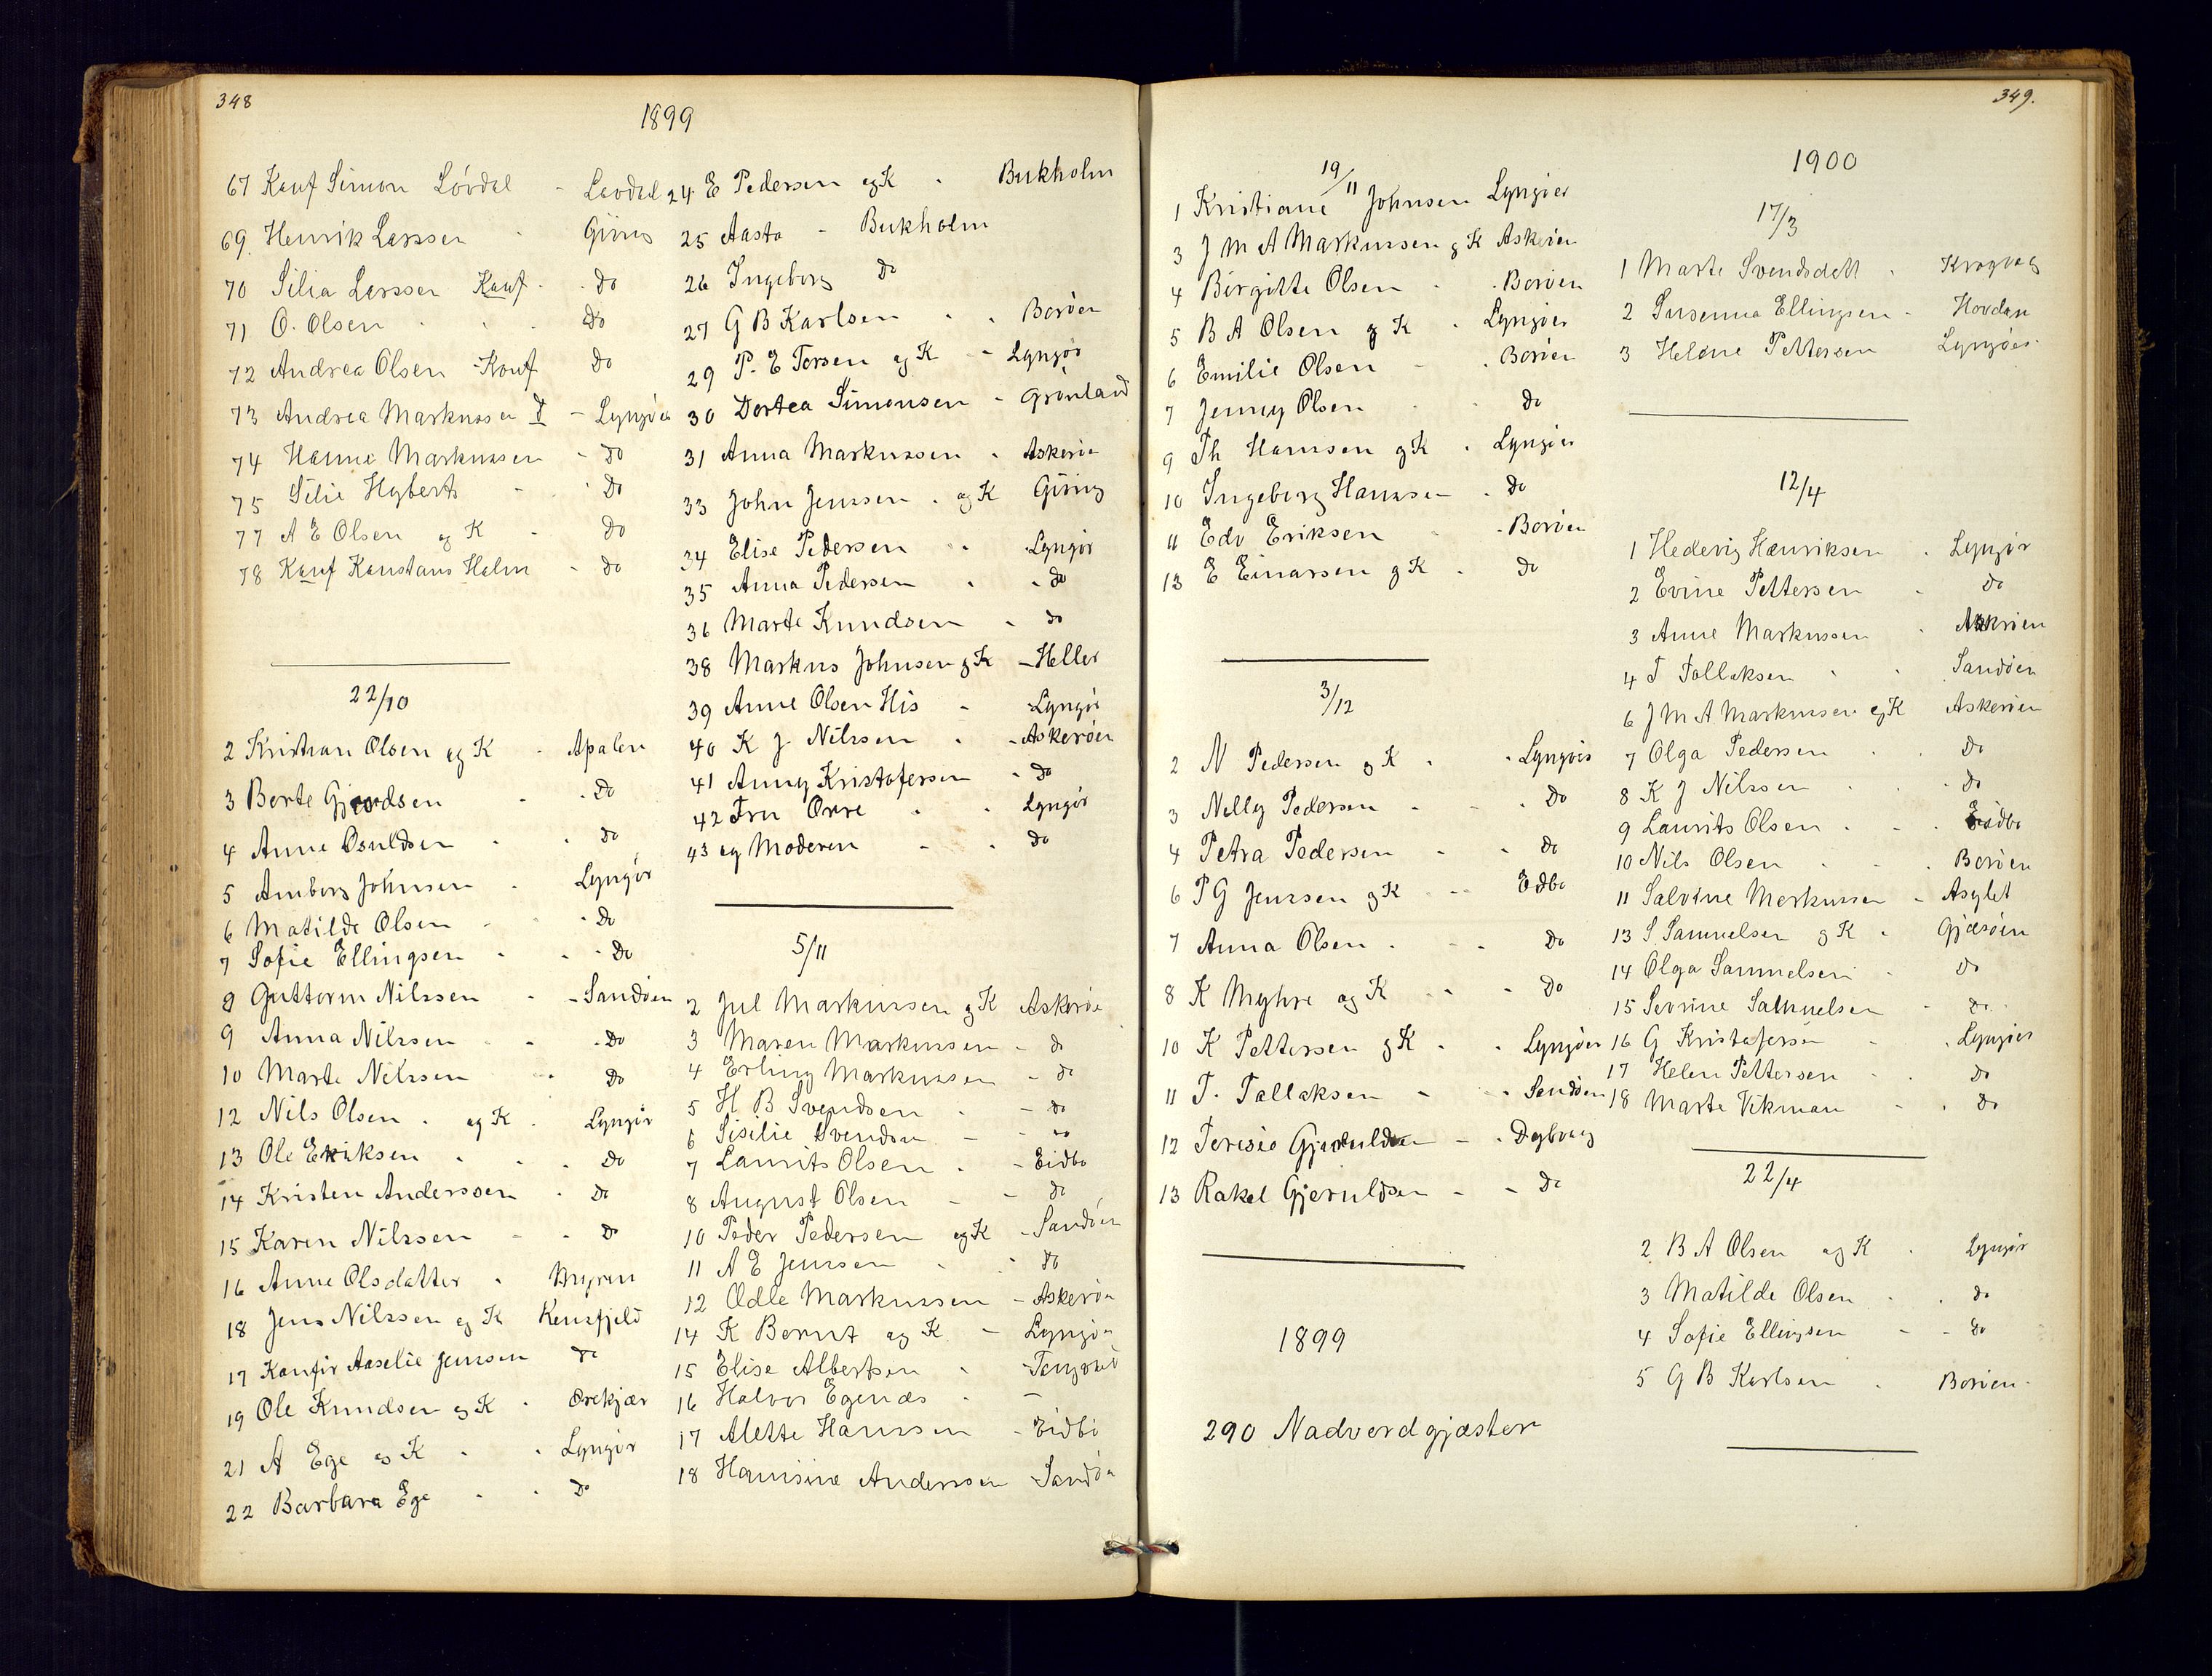 348
1899
67 Konf Simon Løvdal - Løvdal
69. Henrik Larssen - Giving
70 Silia Larssen Konf - Do
71 O. Olsen Do
72 Andrea Olsen Konf Do
73 Andrea Markussen I - Lyngøer
74 Hanne Markussen - Do
75 Silie Hyberts - Do
77 A E Olsen og K - Do
78 Konf Konstans Holm - Do
22/10
2 Kristian Olsen og K - Apalen
3 Berte Gjerdsen - Do
4 Anne Osuldsen - Do
5 Amborg Johnsen - Lyngør
6 Matilde Olsen - Do
7 Sofie Ellingsen - Do
8 Guttorm Nilssen - Sandøen
9 Anna Nilssen - Do
10 Marte Nilssen Do
12 Nils Olsen . og K . Lyngør
13 Ole Eriksen . Do
14 Kristen Anderssen . Do
15 Karen Nilssen - Do
16 Anne Olsdatter . Myren
18 Jens Nilssen og K
17 Konfir Aaselie Jenssen do
19 Ole Knudsen og K . Ørekjær
21 A Ege og K . Lyngør
22 Barbara Ege . Do
24 E Pedersen og K . Bukholm
25 Aasta - Bukholm
26 Ingeborg Do
27 G B Karlsen . . Borøen
29 P. E Torsen og K - Lyngør
30 Dortea Simonsen - Grønland
31 Anna Markussen - Askerøen
33 John Jenssen . og K Giving
34 Elise Pedersen . Lyngør
35 Anna Pedersen . - do
36 Marte Knudsen - do
38 Markus Johnsen og K - Heller
39 Anne Olsen His - Lyngør
40 K J Nilssen . - Askerøen
41 Anny Kristofersen - do
42 Fru Orre . . Lyngør
43 og Moderen - . do
5/11
2 Jul Markussen og K Askerøen
3 Maren Markussen - do
4 Erling Markussen - do
5 H B Svendsen . - do
6 Sisilie Svendsen - - do
7 Laurits Olsen . - Eidbo
8 August Olsen - - do
10 Peder Pedersen og K - Sandøen
11 A E Jenssen . . do
12 Odle Markussen - Askerøen
14 K Bernt og K - Lyngør
15 Elise Albertsen -
16 Halvor Egenæs . -
17 Alette Hanssen - Eidbo
18 Hansine Anderssen - Sandøen
349.
19/11
1 Kristiane Johnsen Lyngøer
3 J M A Markussen og K Askerøen
4 Birgitte Olsen . . Borøen
5 B A Olsen og K . Lyngøer
6 Emilie Olsen - . Borøen
7 Jenny Olsen . . do
9 Th Hanssen og K . Lyngøer
10 Ingeborg Hanssen . do
11 Edv Eriksen - Borøen
13 E Einarsen og K . do
3/12
2 N Pedersen og K . . Lyngøer
3 Nelly Pedersen - - do
4 Petra Pedersen - - do
6 P G Jenssen og K - - Edbo
7 Anna Olsen . - - do
8 K Myhre og K . . do
10 K Pettersen og K . . Lyngøer
11 T. Tallaksen - . Sandøen
12 Teresie Gjeruldsen - . Dybvaag
13 Rakel Gjeruldsen - - do
1899
290 Nadverdgjæster
1900
17/3
1 Marte Svendsdatt . Krogvag
2 Susanna Ellingsen . Hovdan
3 Helene Pettersen Lyngøer
12/4
1 Hedevig Henriksen . Lyngør
2 Evine Pettersen . do
3 Anne Markussen . Askerøen
4 T Tallaksen . . Sandøen
6 J M A Markussen og K Askerøen
7 Olga Pedersen . . do
8 K J Nilssen . . do
9 Laurits Olsen . . . Eidbo
10 Nils Olsen . . . Borøen
11 Salvine Merkussen - Asylet
13 S Samuelsen og K . Gjæsøen
14 Olga Samuelsen . do
15 Severine Samuelsen - do
16 G Kristofersen . Lyngøer
17 Helen Pettersen . . do
18 Marte Vikman - . do
22/4
2 B A Olsen og K . Lyngør
3 Matilde Olsen . . do
4 Sofie Ellingsen - - do
5 G B Karlsen . Borøen